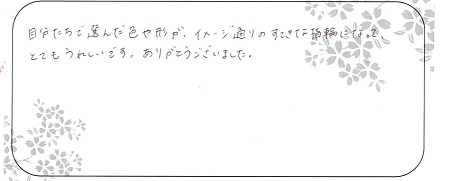 自分たちで選んだ色や形が、イメージ通りのすてきな指輪になって、
とてもうれしいです。ありがとうございました。